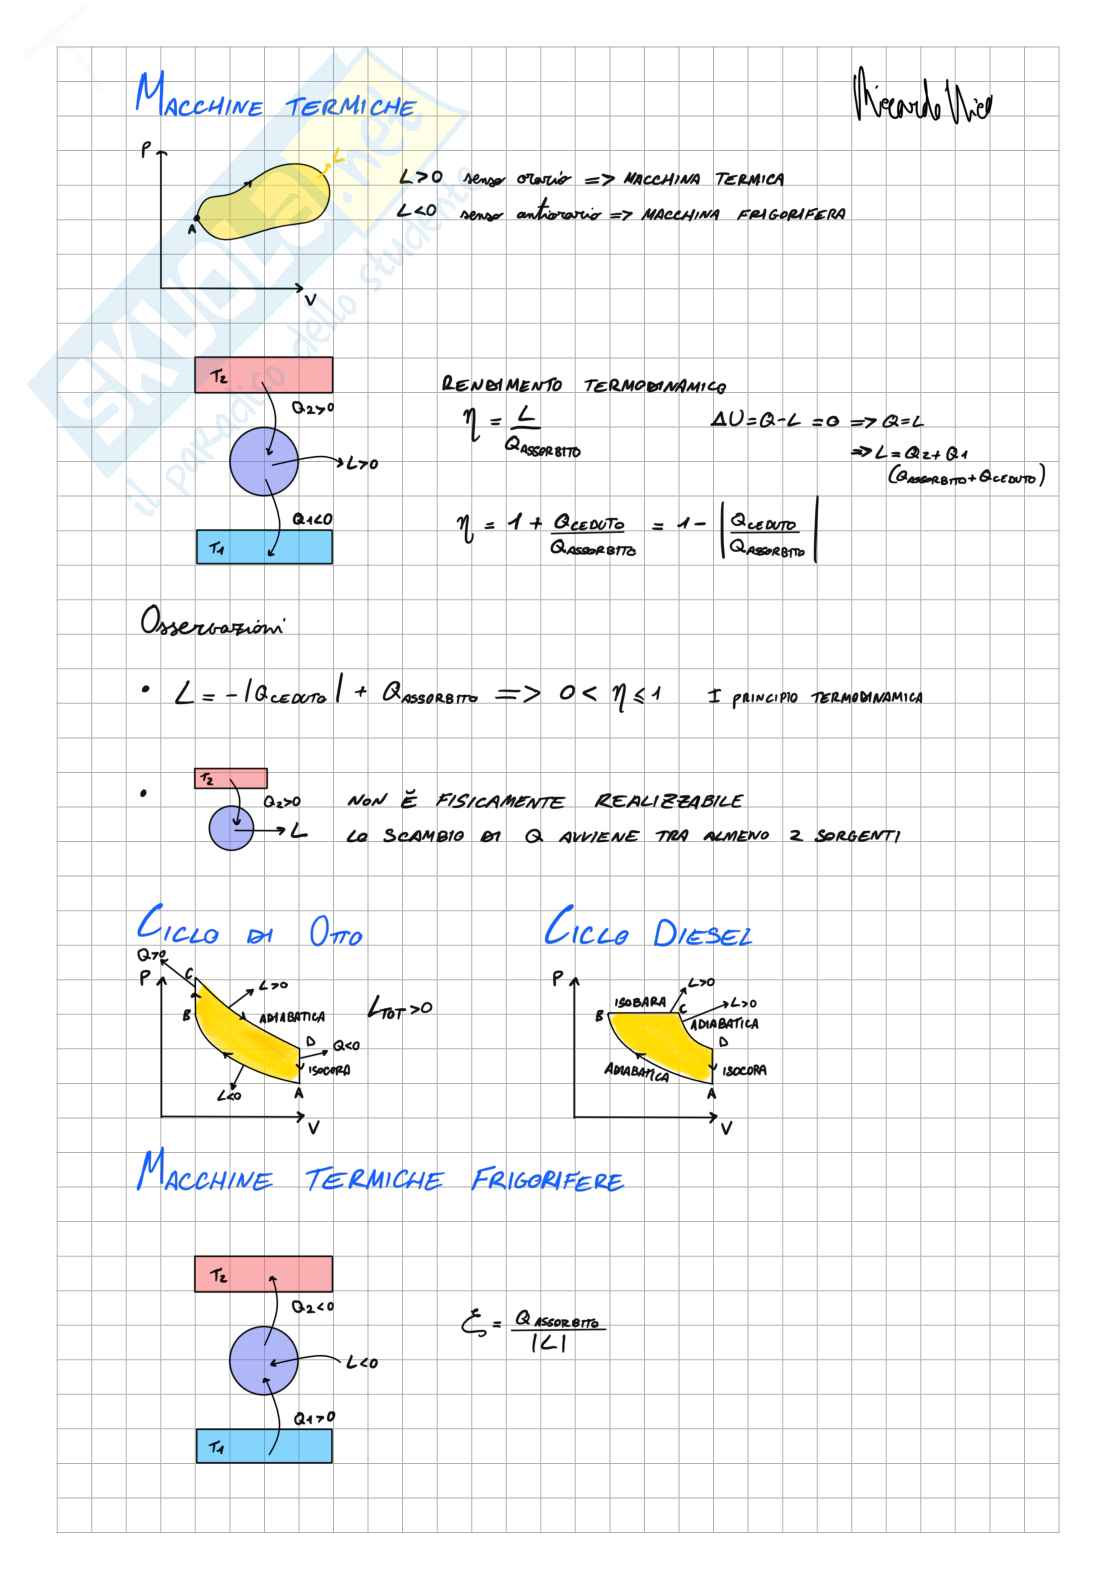 MACCHINE TERMICHE
Riccardo Nico
P
L
L>0 senso orario => MACCHINA TERMICA
L<0 senso antiorario => MACCHINA FRIGORIFERA
A
V
SKUOLA.net
il paradiso dello studente
T2
Q2>0
L>0
Q1<0
T1
RENDIMENTO TERMODINAMICO
η = L / QASSORBITO
ΔU=Q-L =0 => Q=L
=> L=Q2+Q1
(QASSORBITO+QCEDUTO)
η = 1 + QCEDUTO / QASSORBITO = 1 - |QCEDUTO / QASSORBITO|
Osservazioni
• L = -|QCEDUTO| + QASSORBITO => 0 < η ≤ 1 I PRINCIPIO TERMODINAMICA
•
T2
Q2>0
L
NON È FISICAMENTE REALIZZABILE
LO SCAMBIO DI Q AVVIENE TRA ALMENO 2 SORGENTI
CICLO DI OTTO
Q>0
P
C
L>0
B
ADIABATICA
LTOT>0
D
Q<0
ISOCORA
L<0
A
V
CICLO DIESEL
P
ISOBARA
L>0
B
C
L>0
ADIABATICA
D
ADIABATICA
ISOCORA
A
V
MACCHINE TERMICHE FRIGORIFERE
T2
Q2<0
L<0
Q1>0
T1
ξ = QASSORBITO / |L|